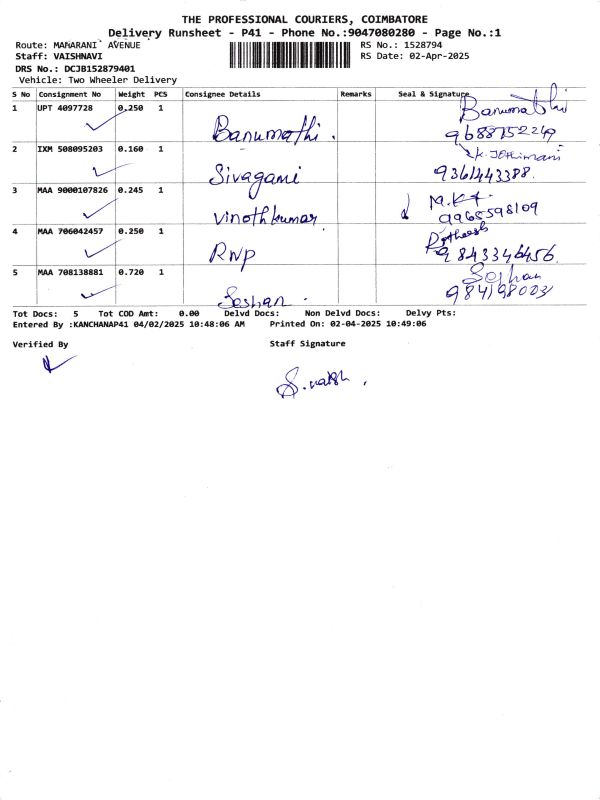 THE PROFESSIONAL COURIERS, COIMBATORE
Delivery Runsheet - P41 - Phone No.:9047080280 - Page No.:1
Route: MAHARANI AVENUE
RS No.: 1528794
Staff: VAISHNAVI
RS Date: 02-Apr-2025
DRS No.: DCJB152879401
Vehicle: Two Wheeler Delivery
S No Consignment No Weight PCS Consignee Details Remarks Seal & Signature
1 UPT 4097728 0.250 1 Banumathi. Banumathi
9688752249
2 IXM 508095203 0.160 1 Sivagami
9361443388.
3 MAA 9000107826 0.245 1 Vinothkumar M.K.
9965598109
4 MAA 706042457 0.250 1 RNP
9843346456.
5 MAA 708138881 0.720 1 Seshan. Seshan
Tot Docs: 5 Tot COD Amt: 0.00 Delvd Docs: Non Delvd Docs: Delvy Pts:
Entered By :KANCHANAP41 04/02/2025 10:48:06 AM Printed On: 02-04-2025 10:49:06
Verified By Staff Signature